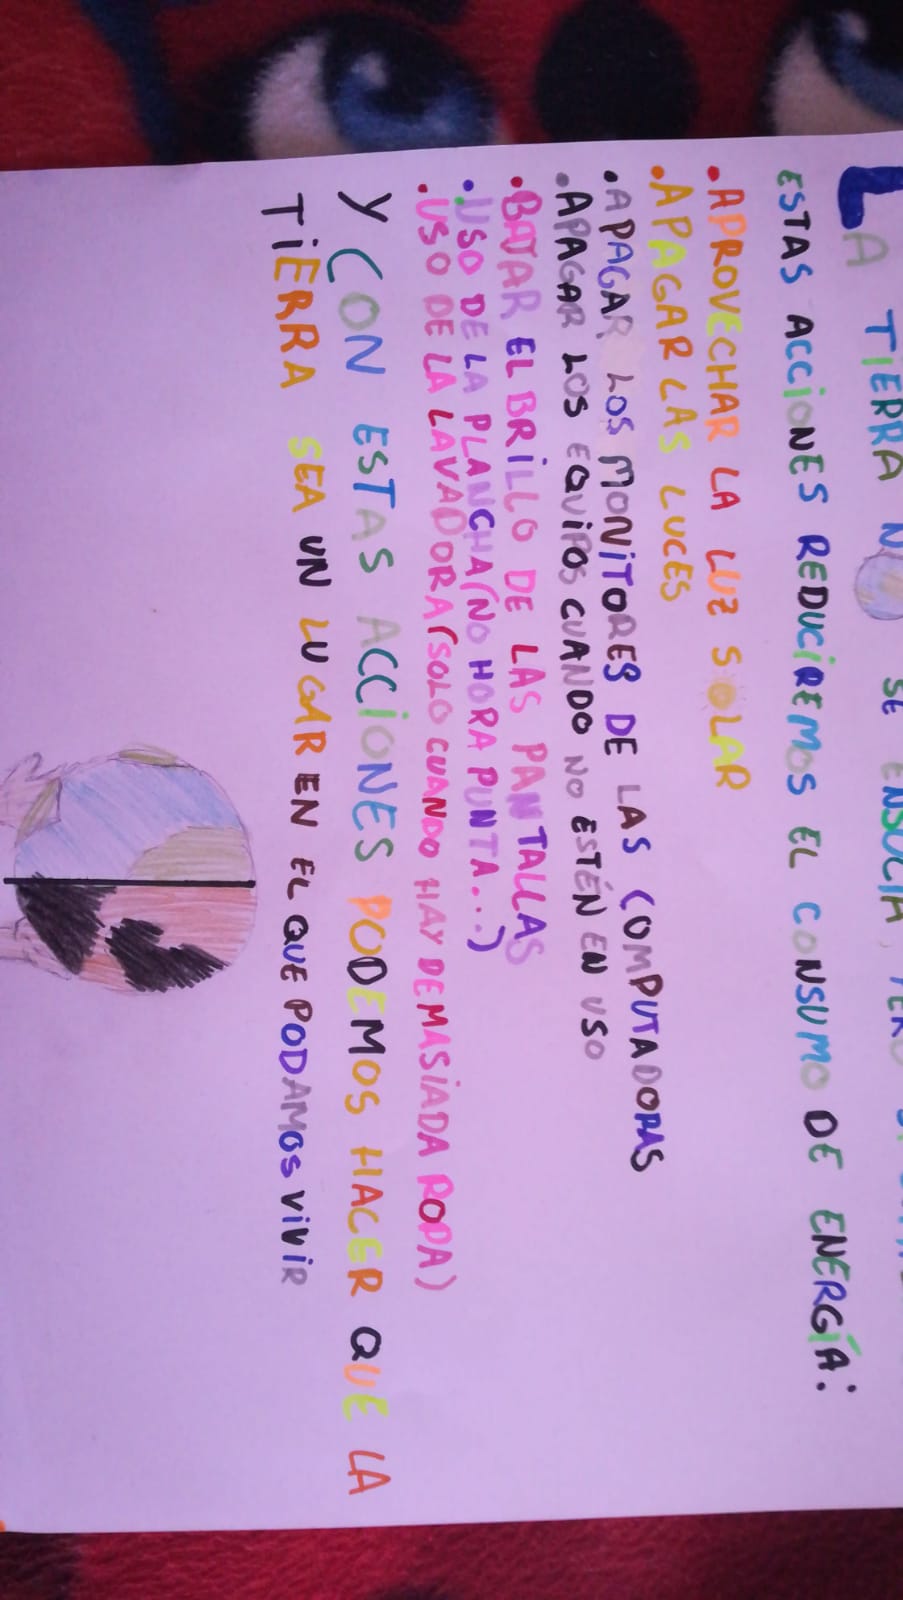 LA TIERRA NO SE ENSUCIA, PERO
ESTAS ACCIONES REDUCIREMOS EL CONSUMO DE ENERGÍA:
• APROVECHAR LA LUZ SOLAR
• APAGAR LAS LUCES
• APAGAR LOS MONITORES DE LAS COMPUTADORAS
• APAGAR LOS EQUIPOS CUANDO NO ESTÉN EN USO
• BAJAR EL BRILLO DE LAS PANTALLAS
• USO DE LA PLANCHA (NO HORA PUNTA...)
• USO DE LA LAVADORA (SOLO CUANDO HAY DEMASIADA ROPA)
Y CON ESTAS ACCIONES PODEMOS HACER QUE LA
TIERRA SEA UN LUGAR EN EL QUE PODAMOS VIVIR